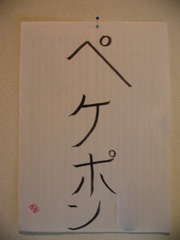 ペケポン